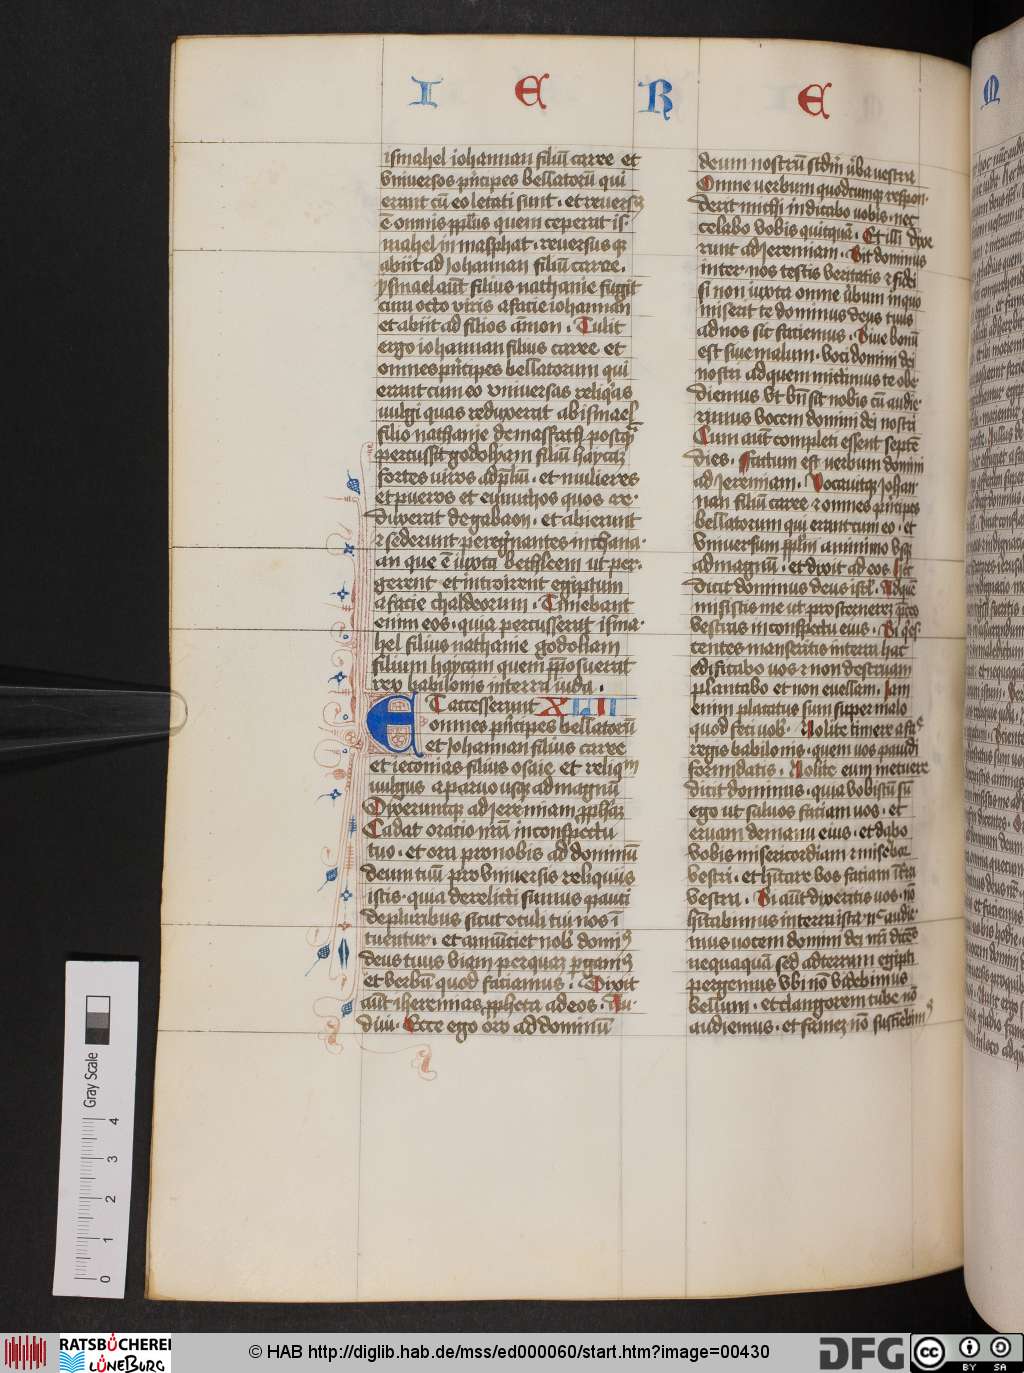 I E R E
ismahel iohannan filiū caree et
vniuersos pncipes bellatorū qui
erant cū eo letati sunt · et reuersꝯ
ē omnis ppl̄us quem ceperat is-
mahel in masphat · reuersus qꝫ
abiit ad Johannan filiū caree ·
ysmael aūt filius nathanie fugit
cum octo viris a facie iohannan
et abiit ad filios āmon · Tulit
ergo iohannan filius caree et
omnes pncipes bellatorum qui
errant cum eo vniuersas reliqas
uulgi quas reduxerat ab ismael
filio nathanie de masfath postqꝫ
percussit godolyam filiū haycaꝫ
fortes viros ad pliū · et mulieres
et pueros et eunuchos quos re-
duxerat de gabaon · et abierunt
⁊ sederunt peregnantes in chana-
an que ē iuxta bethleem ut per-
gerent et introirent egiptum
a facie chaldeorum · Timebant
enim eos · quia percusserat isma-
hel filius nathanie godoliam
filium haycam quem pposuerat
rex babilonis in terra iuda ·
ET accesserunt XLII
omnes pncipes bellatorū
et Johannan filius caree
et ieconias filius osaie et reliqm
uulgus a paruo usqꝫ ad magnū
Dixeruntqꝫ ad ieremiam pphāꝫ
Cadat oratio nrā in conspectu
tuo · et ora pro nobis ad dominū
deum tuū pro vniuersis reliquiis
istis · quia derelicti sumus pauci
de pluribus sicut oculi tui nos ī
tuentur · et annūciet nob dominꝯ
deus tuus viam per quaꝫ pgamꝯ
et verbū quod faciamus · Dixit
aūt iheremias ppheta ad eos · Au-
diui · Ecce ego oro ad dominū
deum nostrū scdm̄ ūba vestra
Omne uerbum quodcumqꝫ respon-
derit michi indicabo uobis · nec
celabo vobis quitquā · Et illi dixe
runt ad Jeremiam · Sit dominus
inter nos testis veritatis ⁊ fidei
si non iuxta omne ūbum in quo
miserit te dominus deus tuus
ad nos sic faciemus · Siue bonū
est siue malum · voci domini dei
nostri ad quem mittimus te obe-
diemus ut bn̄ sit nobis cū audie-
rimus vocem domini dei nostri
Cum aūt completi essent septē
dies · Factum est uerbum domini
ad Jeremiam · Vocauitqꝫ Johan-
nan filiū caree ⁊ omnes pncipes
bellatorum qui erant cum eo · et
vniuersum pplm̄ a minimo vsqꝫ
ad magnū · et dixit ad eos hec
dicit dominus deus isrl · Ad quē
misistis me ut prosternereꝫ pces
vestras in conspectu eius · Si qes-
centes manseritis in terra hac
edificabo uos ⁊ non destruam
plantabo et non euellam · Jam
enim placatus sum super malo
quod feci uob · Nolite timere a facie
regis babilonis · quem uos pauidi
formidatis · Nolite eum metuere
dicit dominus · quia vobiscū sū
ego ut saluos faciam uos · et
eruam de manu eius · et dabo
vobis misericordiam ⁊ misebor
vestri · et hītare vos faciam ī tra
vestra · Si aūt dixeritis uos · nō
hītabimus in terra ista · nec audie-
mus uocem domini dei nrī dicētes
nequaquā sed ad terram egipti
pergemus vbi nō videbimus
bellum · et clangorem tube nō
audiemus · et fameꝫ nō sustinebimꝯ
M
Gray Scale
0 1 2 3 4
RATSBÜCHEREI
LÜNEBURG
© HAB http://diglib.hab.de/mss/ed000060/start.htm?image=00430
DFG
cc BY SA